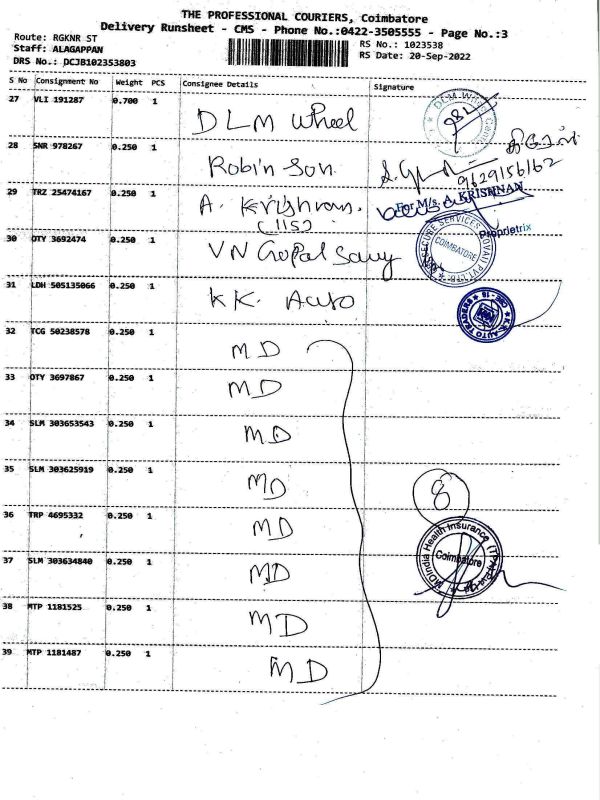 THE PROFESSIONAL COURIERS, Coimbatore
Delivery Runsheet - CMS - Phone No.:0422-3505555 - Page No.:3
Route: RGKNR ST
Staff: ALAGAPPAN
DRS No.: DCJB102353803
RS No.: 1023538
RS Date: 20-Sep-2022
S No Consignment No Weight PCS Consignee Details Signature
27 VLI 191287 0.700 1 DLM Wheel
28 SNR 978267 0.250 1 Robinson
9629156162
29 TRZ 25474167 0.250 1 A. Krishnan.
(115)
For M/s. A. KRISHNAN
Proprietrix
30 OTY 3692474 0.250 1 VN Gopal Samy
COIMBATORE
31 LDH 505135066 0.250 1 KK. Auto
32 TCG 50238578 0.250 1 MD
33 OTY 3697867 0.250 1 MD
34 SLM 303653543 0.250 1 MD
35 SLM 303625919 0.250 1 MD
8
36 TRP 4695332 0.250 1 MD
37 SLM 303634840 0.250 1 MD
MDIndia Health Insurance (TPA)
Coimbatore
38 MTP 1181525 0.250 1 MD
39 MTP 1181487 0.250 1 MD